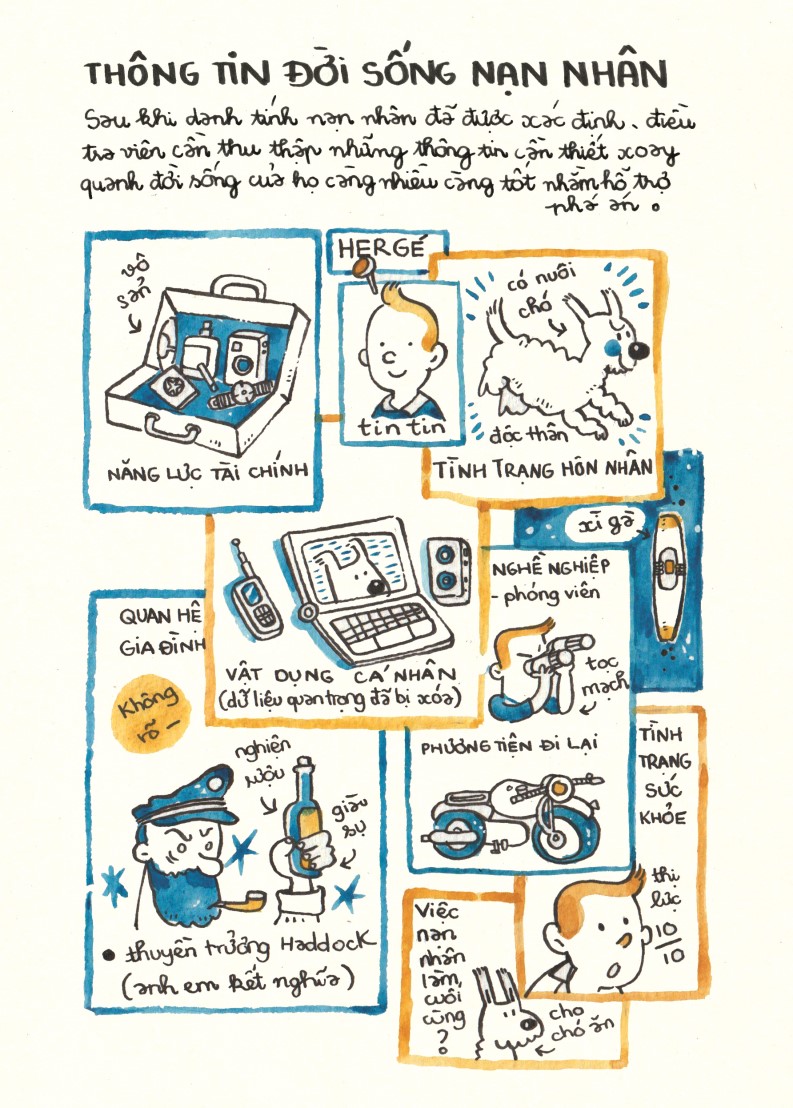 THÔNG TIN ĐỜI SỐNG NẠN NHÂN
Sau khi danh tính nạn nhân đã được xác định, điều
tra viên cần thu thập những thông tin cần thiết xoay
quanh đời sống của họ càng nhiều càng tốt nhằm hỗ trợ
phá án.
vô
sản
NĂNG LỰC TÀI CHÍNH
HERGÉ
tin tin
có nuôi
chó
độc thân
TÌNH TRẠNG HÔN NHÂN
xì gà
VẬT DỤNG CÁ NHÂN
(dữ liệu quan trọng đã bị xóa)
NGHỀ NGHIỆP
- phóng viên
tọc
mạch
PHƯƠNG TIỆN ĐI LẠI
QUAN HỆ
GIA ĐÌNH
Không
rõ –
nghiện
rượu
giàu
sụ
• thuyền trưởng Haddock
(anh em kết nghĩa)
TÌNH
TRẠNG
SỨC
KHỎE
thị
lực
10
10
Việc
nạn
nhân
làm,
cuối
cùng
?
cho
chó ăn